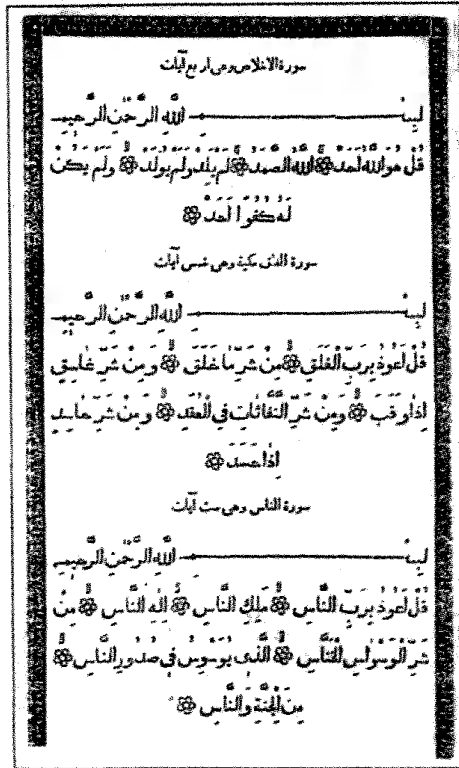 سورة الاخلاص وهى اربع آيات
بِسْمِ اللّٰهِ الرَّحْمٰنِ الرَّحِيمِ
قُلْ هُوَ اللّٰهُ اَحَدٌ ۞ اَللّٰهُ الصَّمَدُ ۞ لَمْ يَلِدْ وَلَمْ يُولَدْ ۞ وَلَمْ يَكُنْ
لَهُ كُفُوًا اَحَدٌ ۞
سورة الفلق مكية وهى خمس آيات
بِسْمِ اللّٰهِ الرَّحْمٰنِ الرَّحِيمِ
قُلْ اَعُوذُ بِرَبِّ الْفَلَقِ ۞ مِنْ شَرِّ مَا خَلَقَ ۞ وَمِنْ شَرِّ غَاسِقٍ
اِذَا وَقَبَ ۞ وَمِنْ شَرِّ النَّفَّاثَاتِ فِى الْعُقَدِ ۞ وَمِنْ شَرِّ حَاسِدٍ
اِذَا حَسَدَ ۞
سورة الناس وهى ست آيات
بِسْمِ اللّٰهِ الرَّحْمٰنِ الرَّحِيمِ
قُلْ اَعُوذُ بِرَبِّ النَّاسِ ۞ مَلِكِ النَّاسِ ۞ اِلٰهِ النَّاسِ ۞ مِنْ
شَرِّ الْوَسْوَاسِ الْخَنَّاسِ ۞ اَلَّذِى يُوَسْوِسُ فِى صُدُورِ النَّاسِ ۞
مِنَ الْجِنَّةِ وَالنَّاسِ ۞